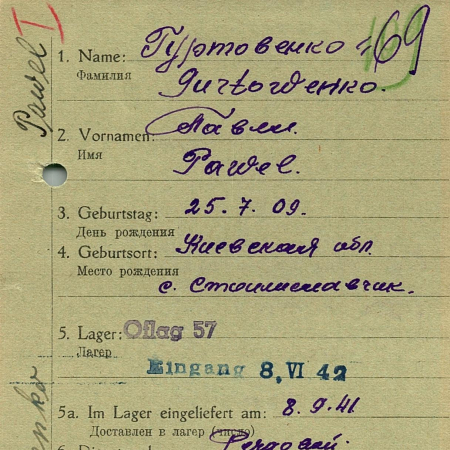 Pawel I
1. Name: Гуртовенко 169
Фамилия Gurtowenko.
2. Vornamen: Павел.
Имя Pawel.
3. Geburtstag: 25. 7. 09.
День рождения
4. Geburtsort: Киевская обл.
Место рождения с. Станиславчик.
5. Lager: Oflag 57
Лагер
Eingang 8. VI 42
5a. Im Lager eingeliefert am: 8. 9. 41.
Доставлен в лагер (число)
enko